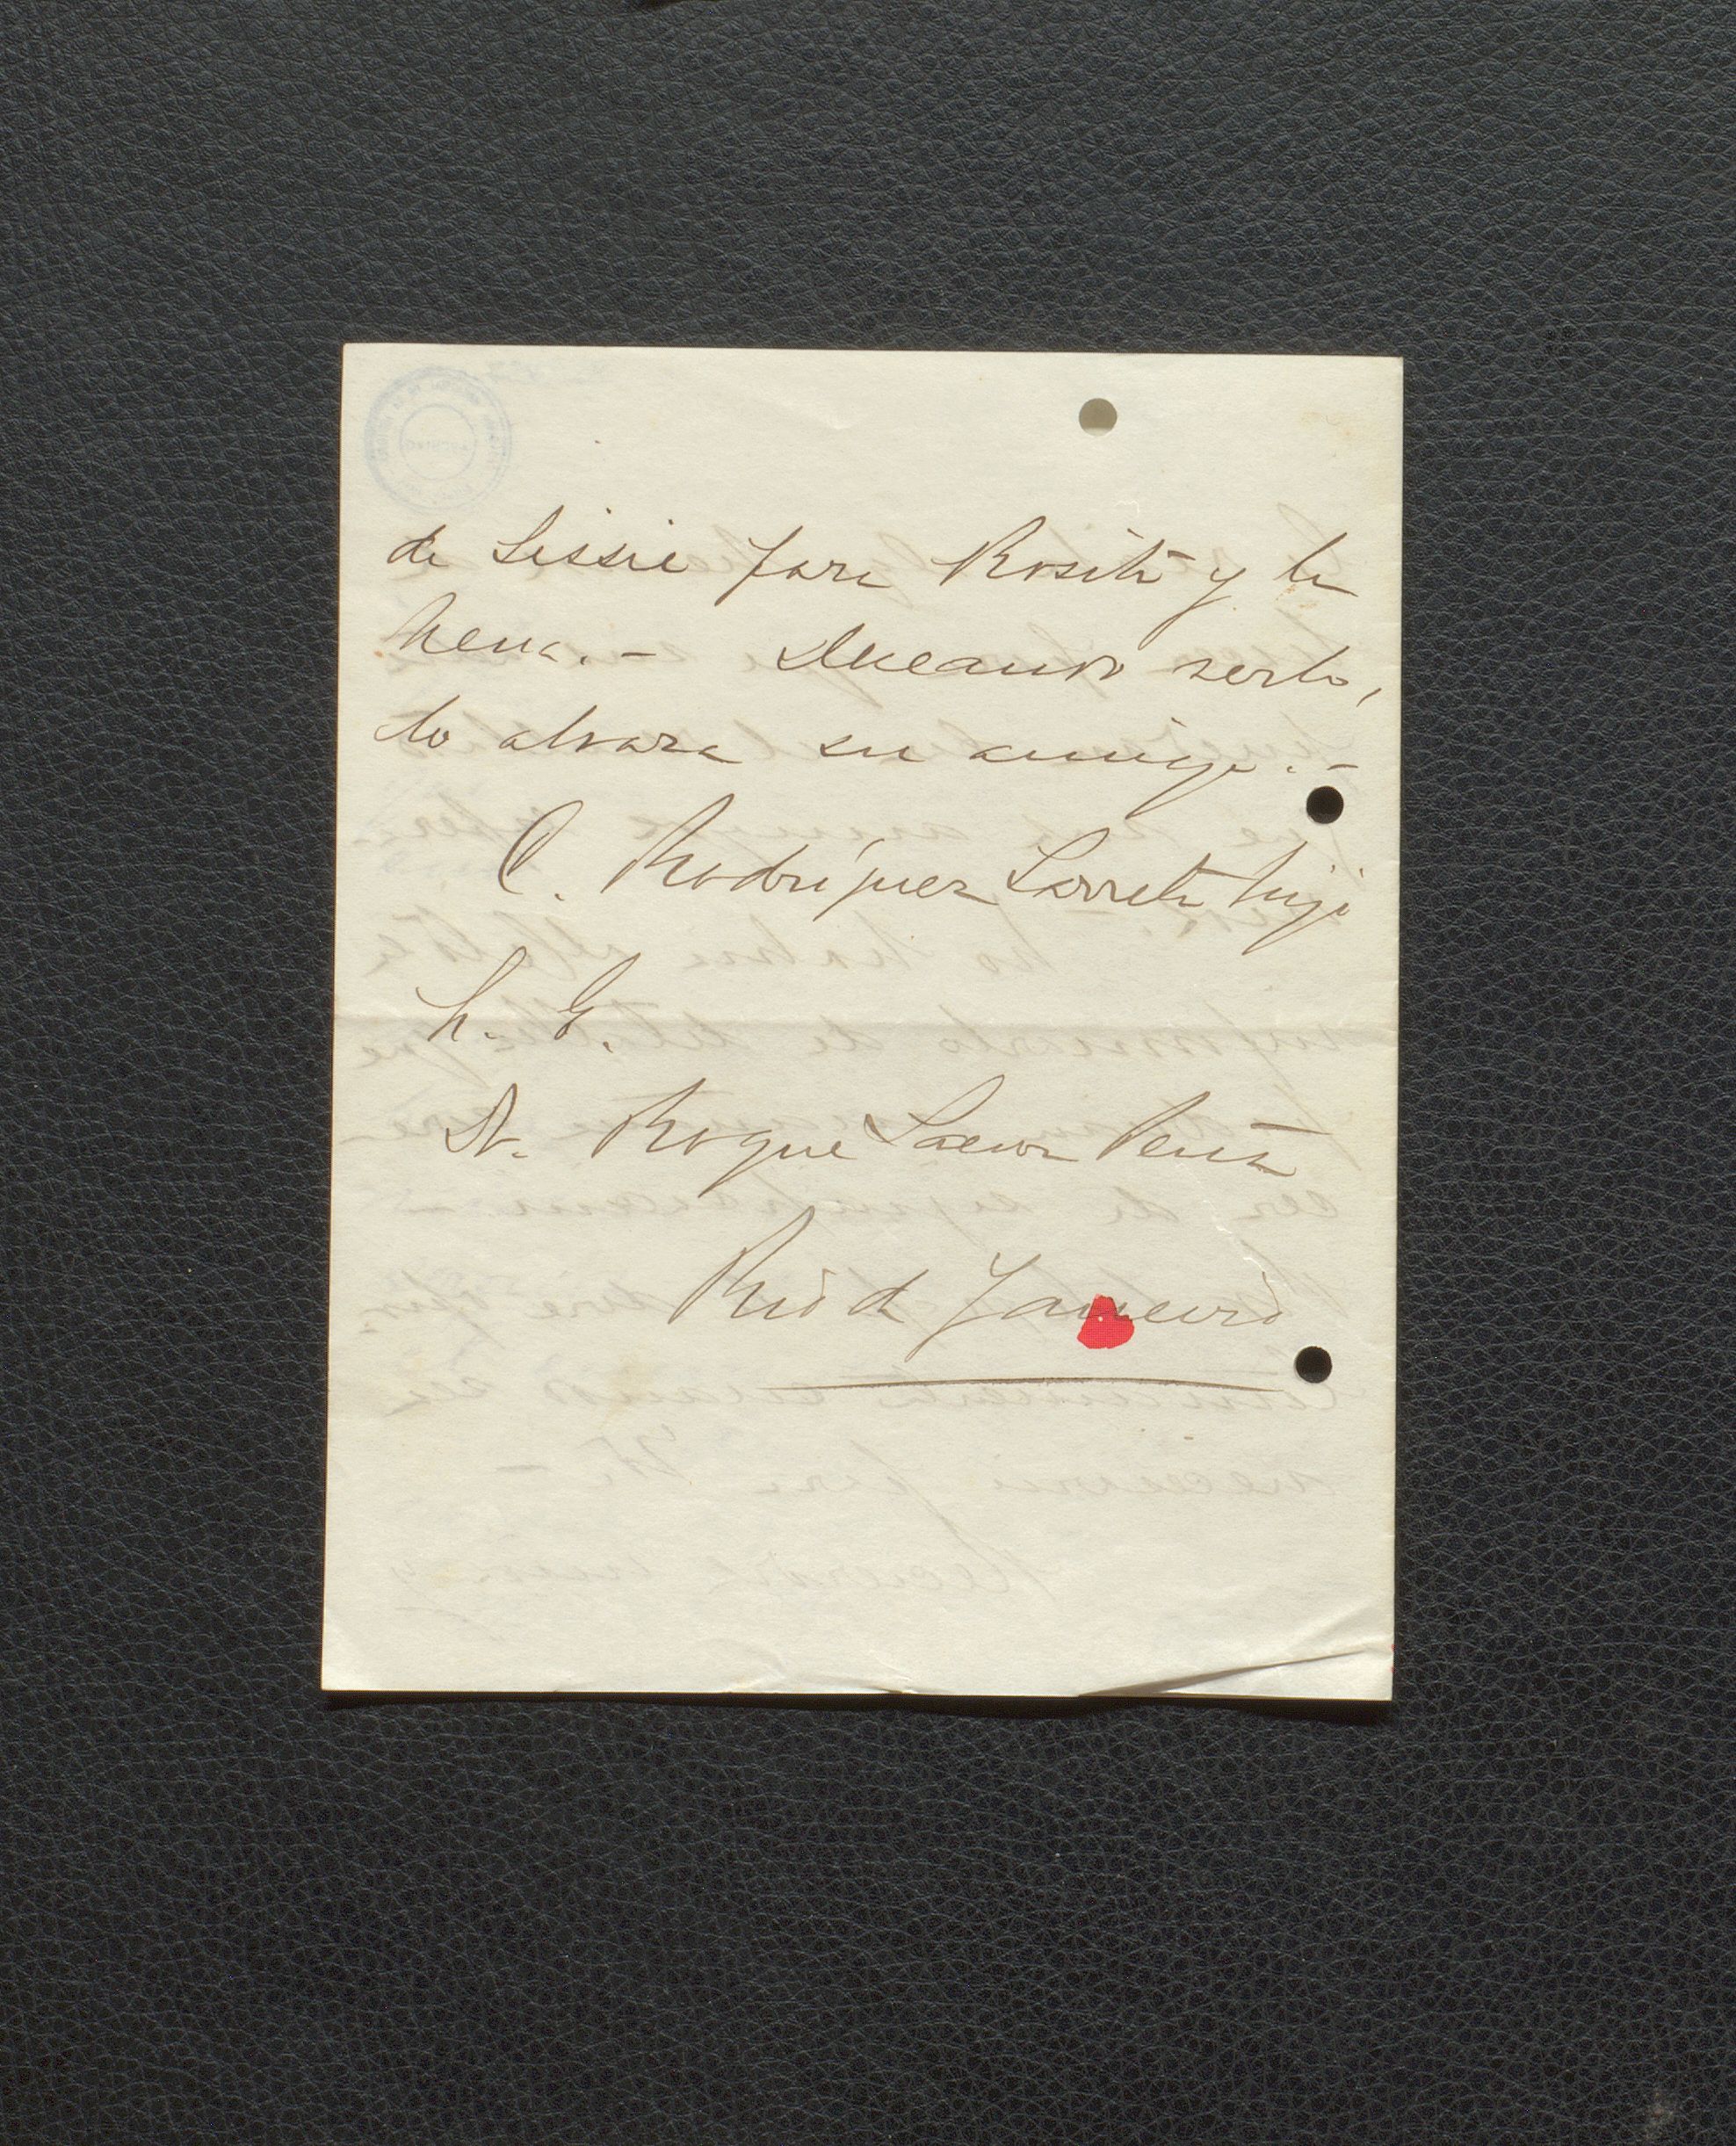 de Lissie para Rosita y la
Nena.- Deseando verlo,
lo abraza su amigo.-
C. Rodríguez Larreta hijo
S. E.
Dr. Roque Saenz Peña
Rio de Janeiro